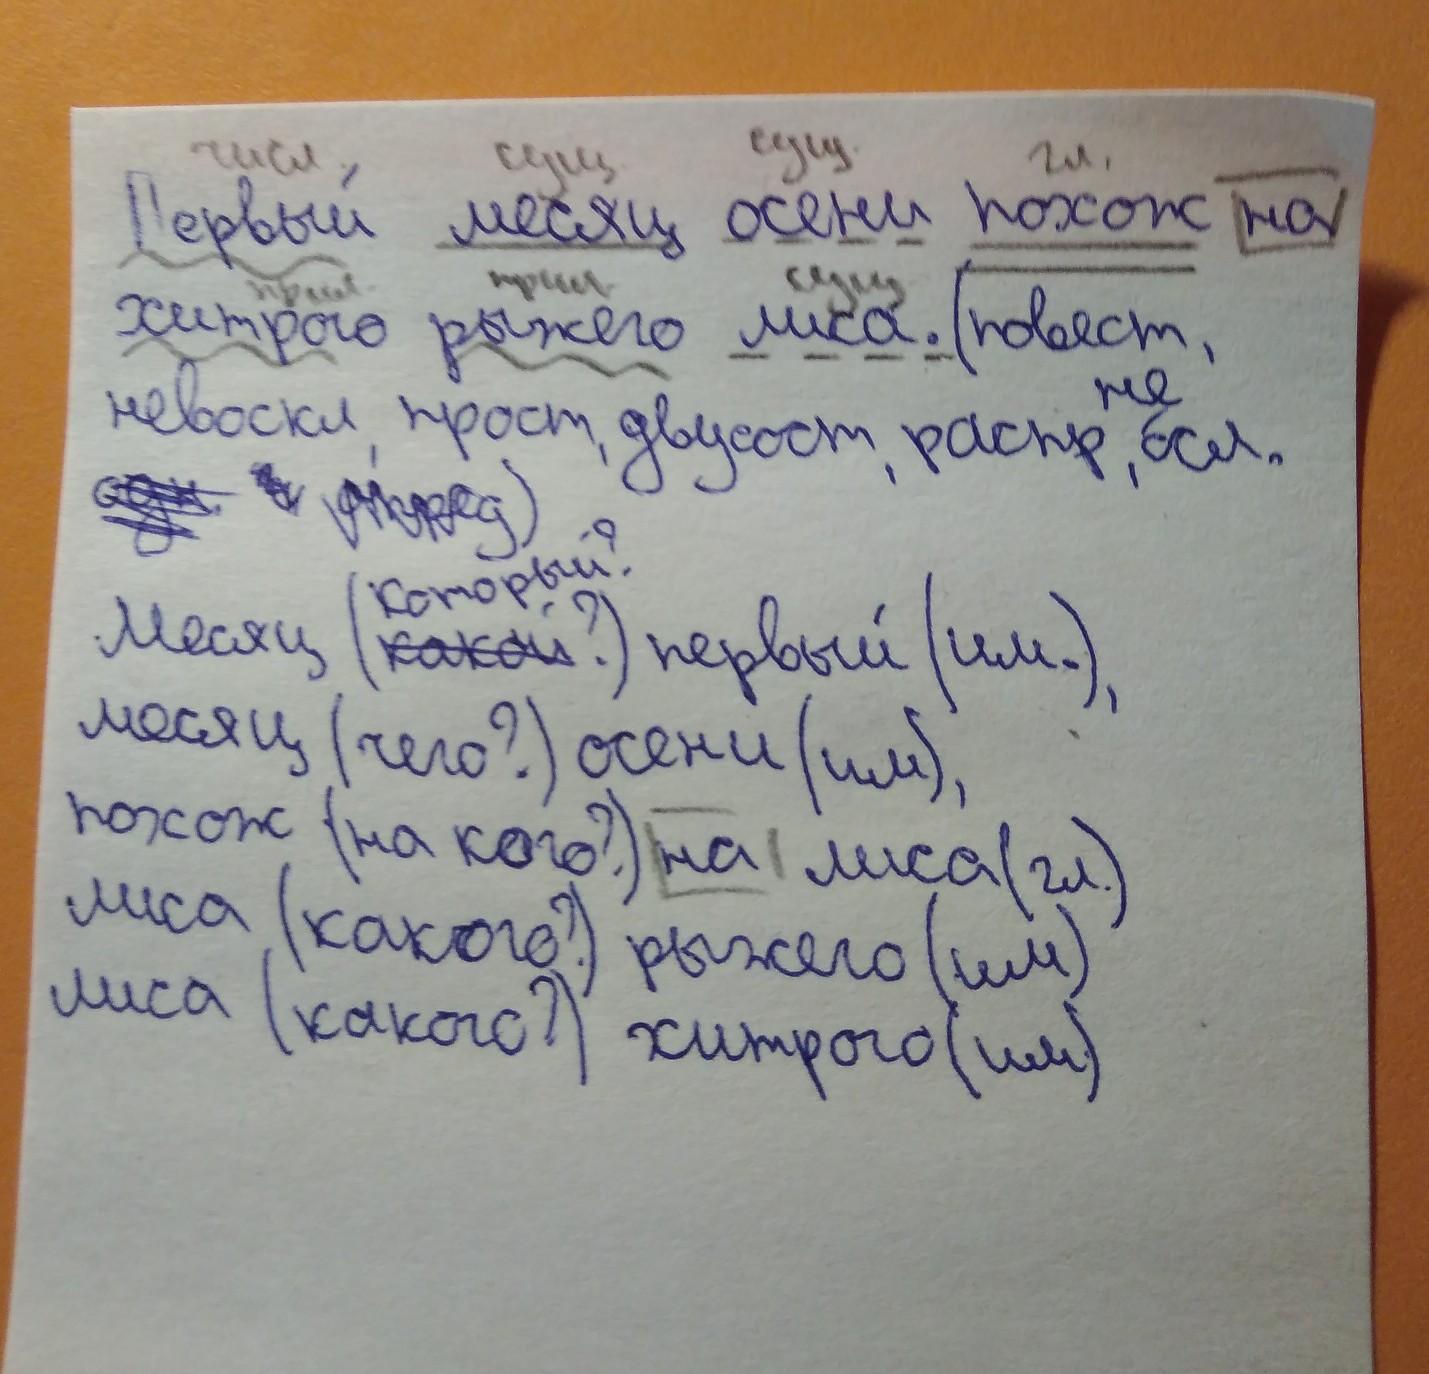 числ. сущ. сущ. гл.
Первый месяц осени похож на
прил. прил. сущ.
хитрого рыжего лиса. (повест,
невоскл, прост, двусост, распр, не осл.
Месяц (который? какой?) первый (им.),
месяц (чего?) осени (им),
похож (на кого?) на лиса (гл.)
лиса (какого?) рыжего (им)
лиса (какого?) хитрого (им)